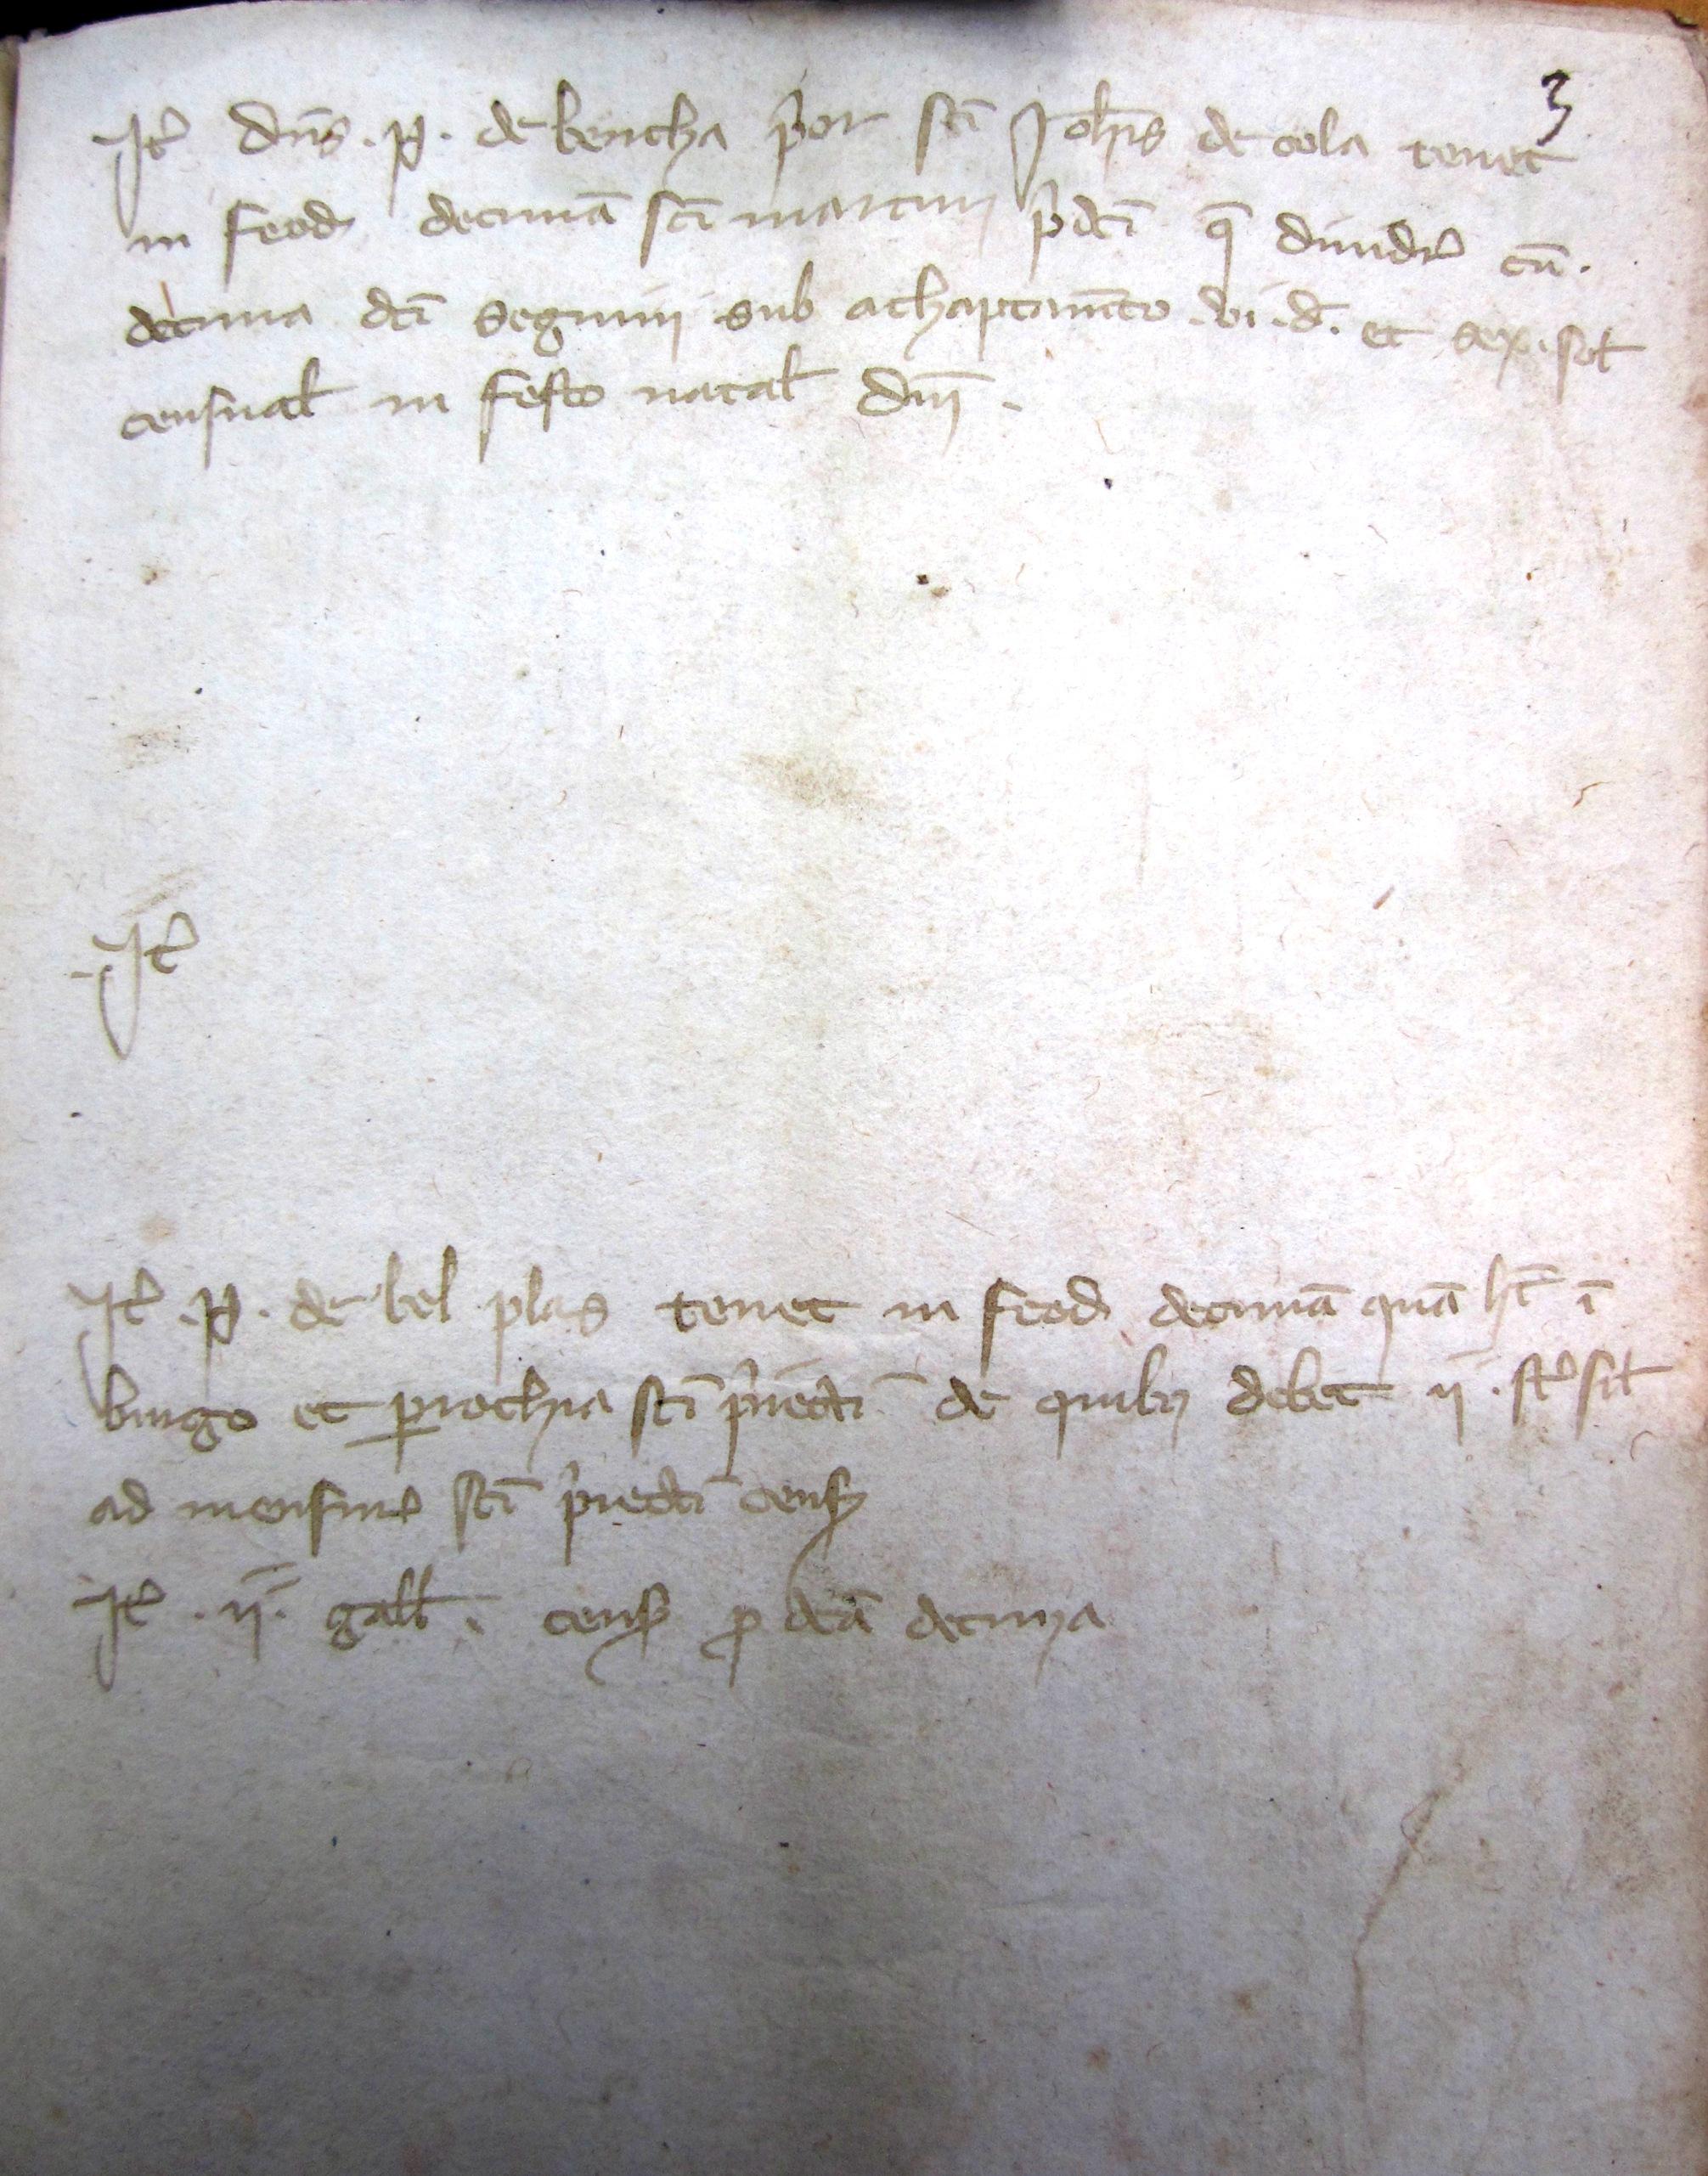 3
Itꝰ dn̄s .p̱. de bencha p̾or sc̄i Joh̄is de cola tenet
in feod decimā sc̄i martini p̾dc̄i q̄ diuidit᷑ cū.
decima dc̄i seguini sub achaptam̄to .vi.d̄. et sex. sol̄
censual̄ in festo natal̄ dn̄i.
Itꝰ
Itꝰ .p̱. de bel plas tenet in feod decimā quā h̄t ī
burgo et ꝑrochia sc̄i p̾iecti de quibꝫ debet ii. st᷑ sil̄
ad mensur᷑ sc̄i p̾iecti cens
Itꝰ .ii. gall̄. cens ꝓ dc̄ā decima